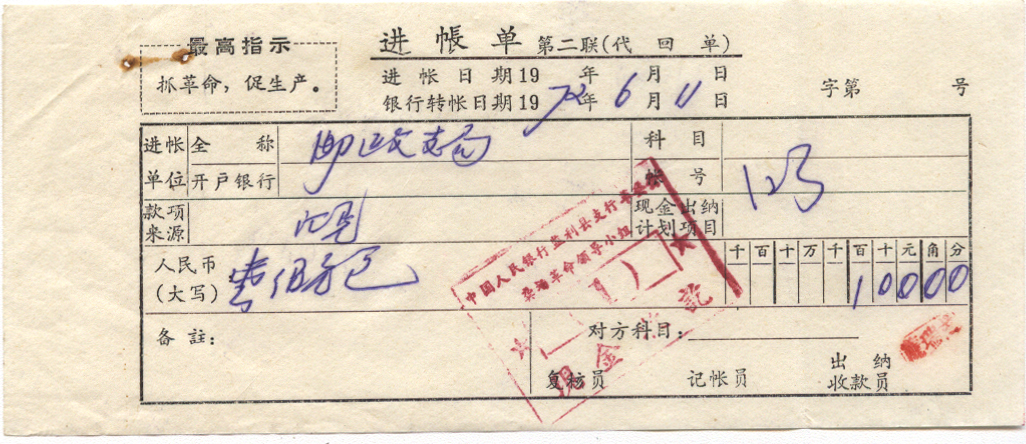 最高指示
抓革命，促生产。
进帳单 第二联(代回单)
进帐日期19 年 月 日
银行转帐日期1972年6月11日
字第 号
进帐单位 全称 邮政支局 科目
开户银行 帐号 123
款项来源 现金出纳计划项目
人民币(大写) 壹佰元 千百十万千百十元角分
10000
中国人民银行监利县支行
革命领导小组
现金
记
备註： 对方科目：
复核员 记帐员 出纳收款员